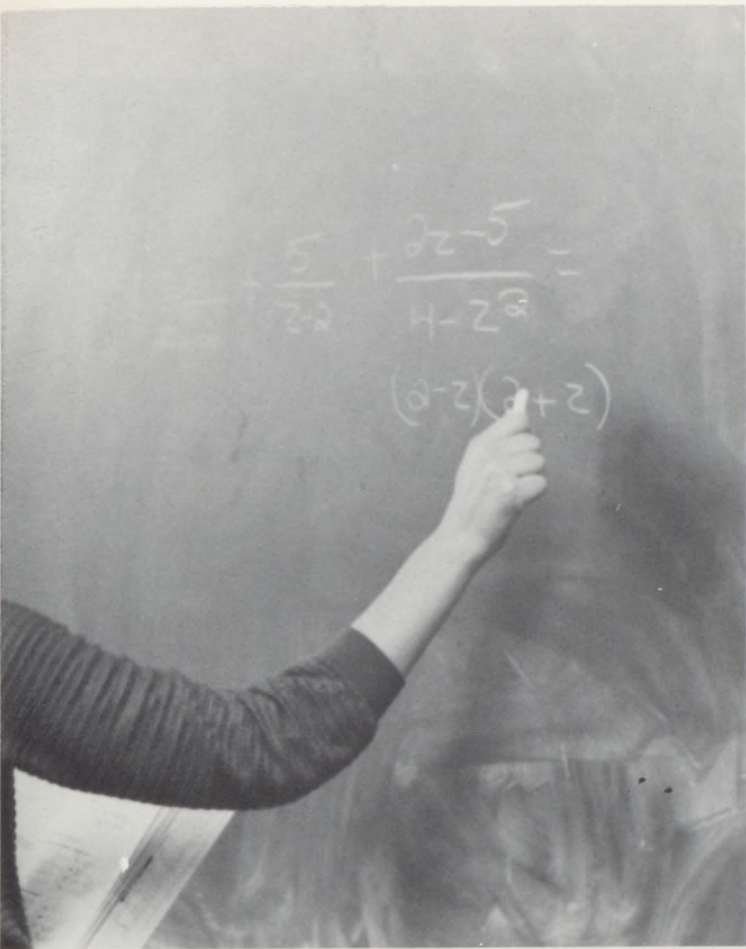 + 5/(z-2) + (2z-5)/(4-z²) =
(2-z)(2+z)